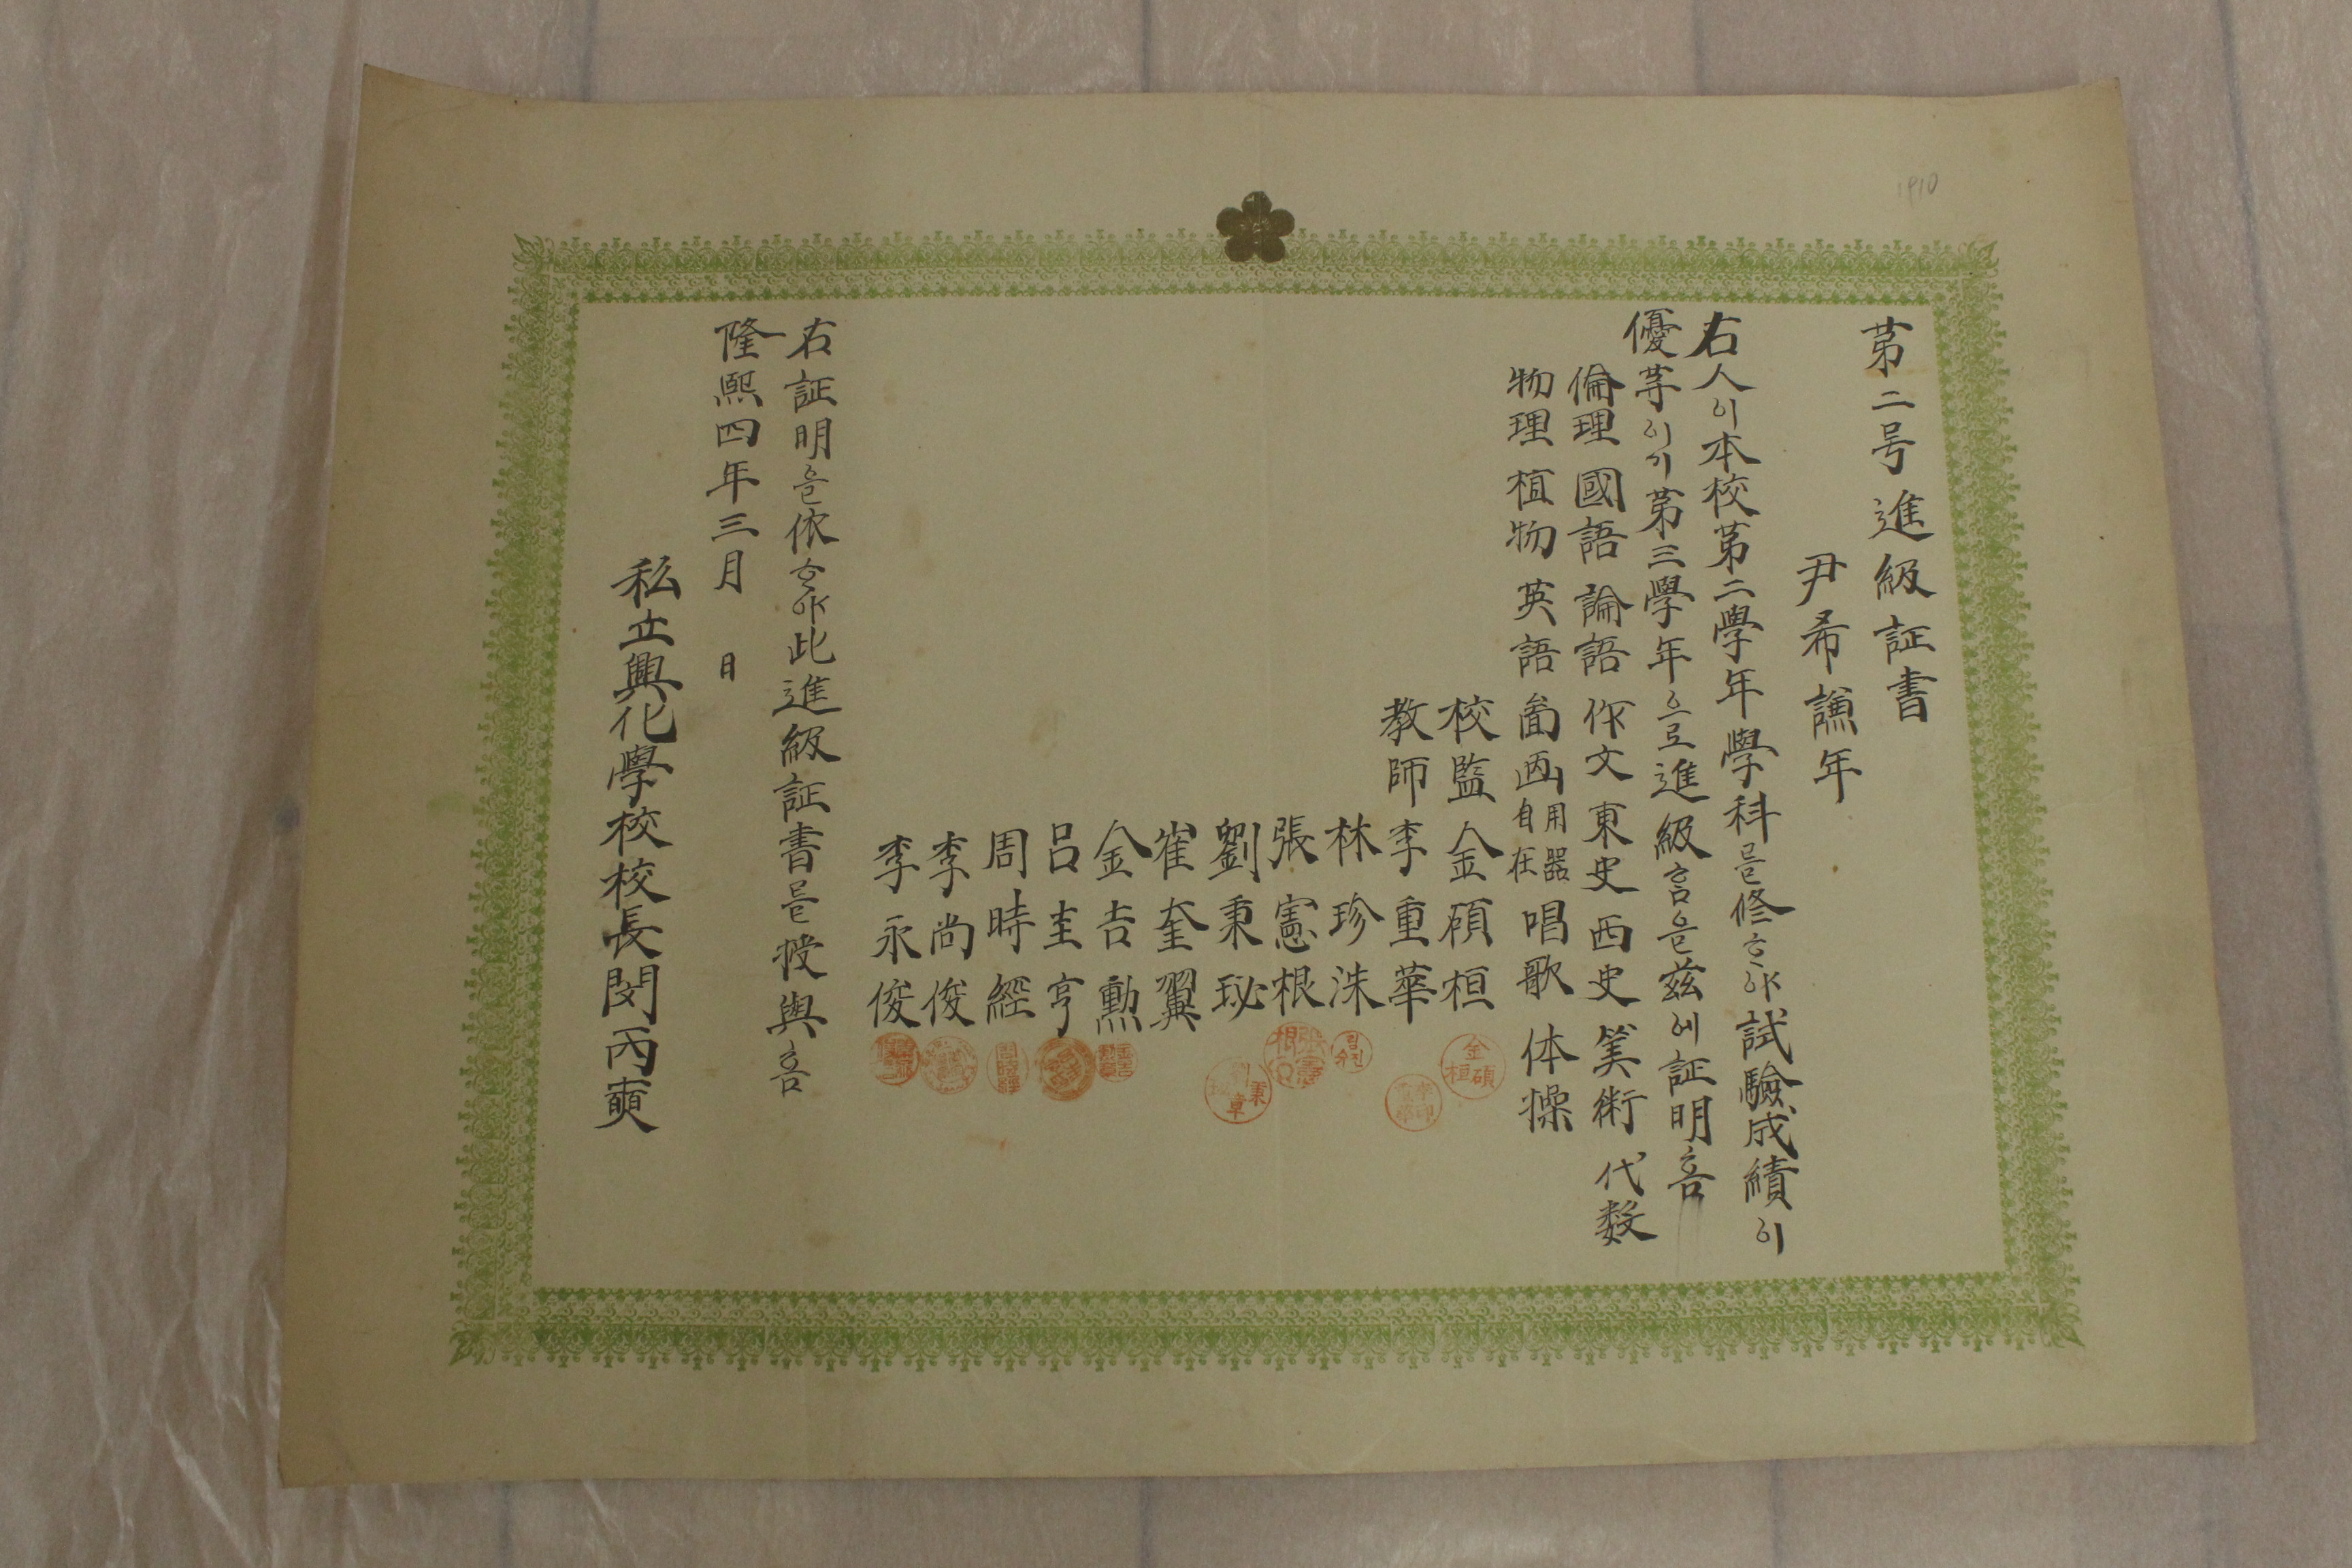 1910
第二号 進級証書
尹希譓年
右人이本校第二學年學科를修ᄒᆞ야試驗成績이
優等이기第三學年으로進級ᄒᆞᆷ을玆에証明ᄒᆞᆷ
倫理 國語 論語 作文 東史 西史 筭術 代數
物理 植物 英語 啚画 用器 自在 唱歌 体操
校監 金碩桓
教師 李重華
林珍洙
張憲根
劉秉珌
崔奎翼
金吉勳
呂圭亨
周時經
李尚俊
李永俊
右証明을依ᄒᆞ야此進級証書를授與ᄒᆞᆷ
隆熙四年三月 日
私立興化學校校長閔丙奭
金碩桓
림진수